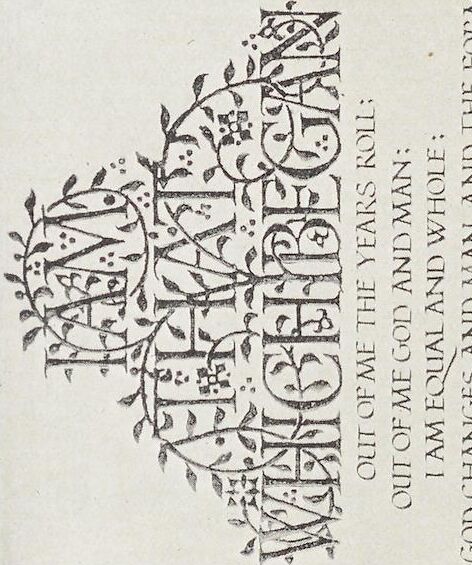 I AM
THAT
WHICH BEGAN
OUT OF ME THE YEARS ROLL;
OUT OF ME GOD AND MAN;
I AM EQUAL AND WHOLE;
GOD CHANGES, AND MAN, AND THE FORM